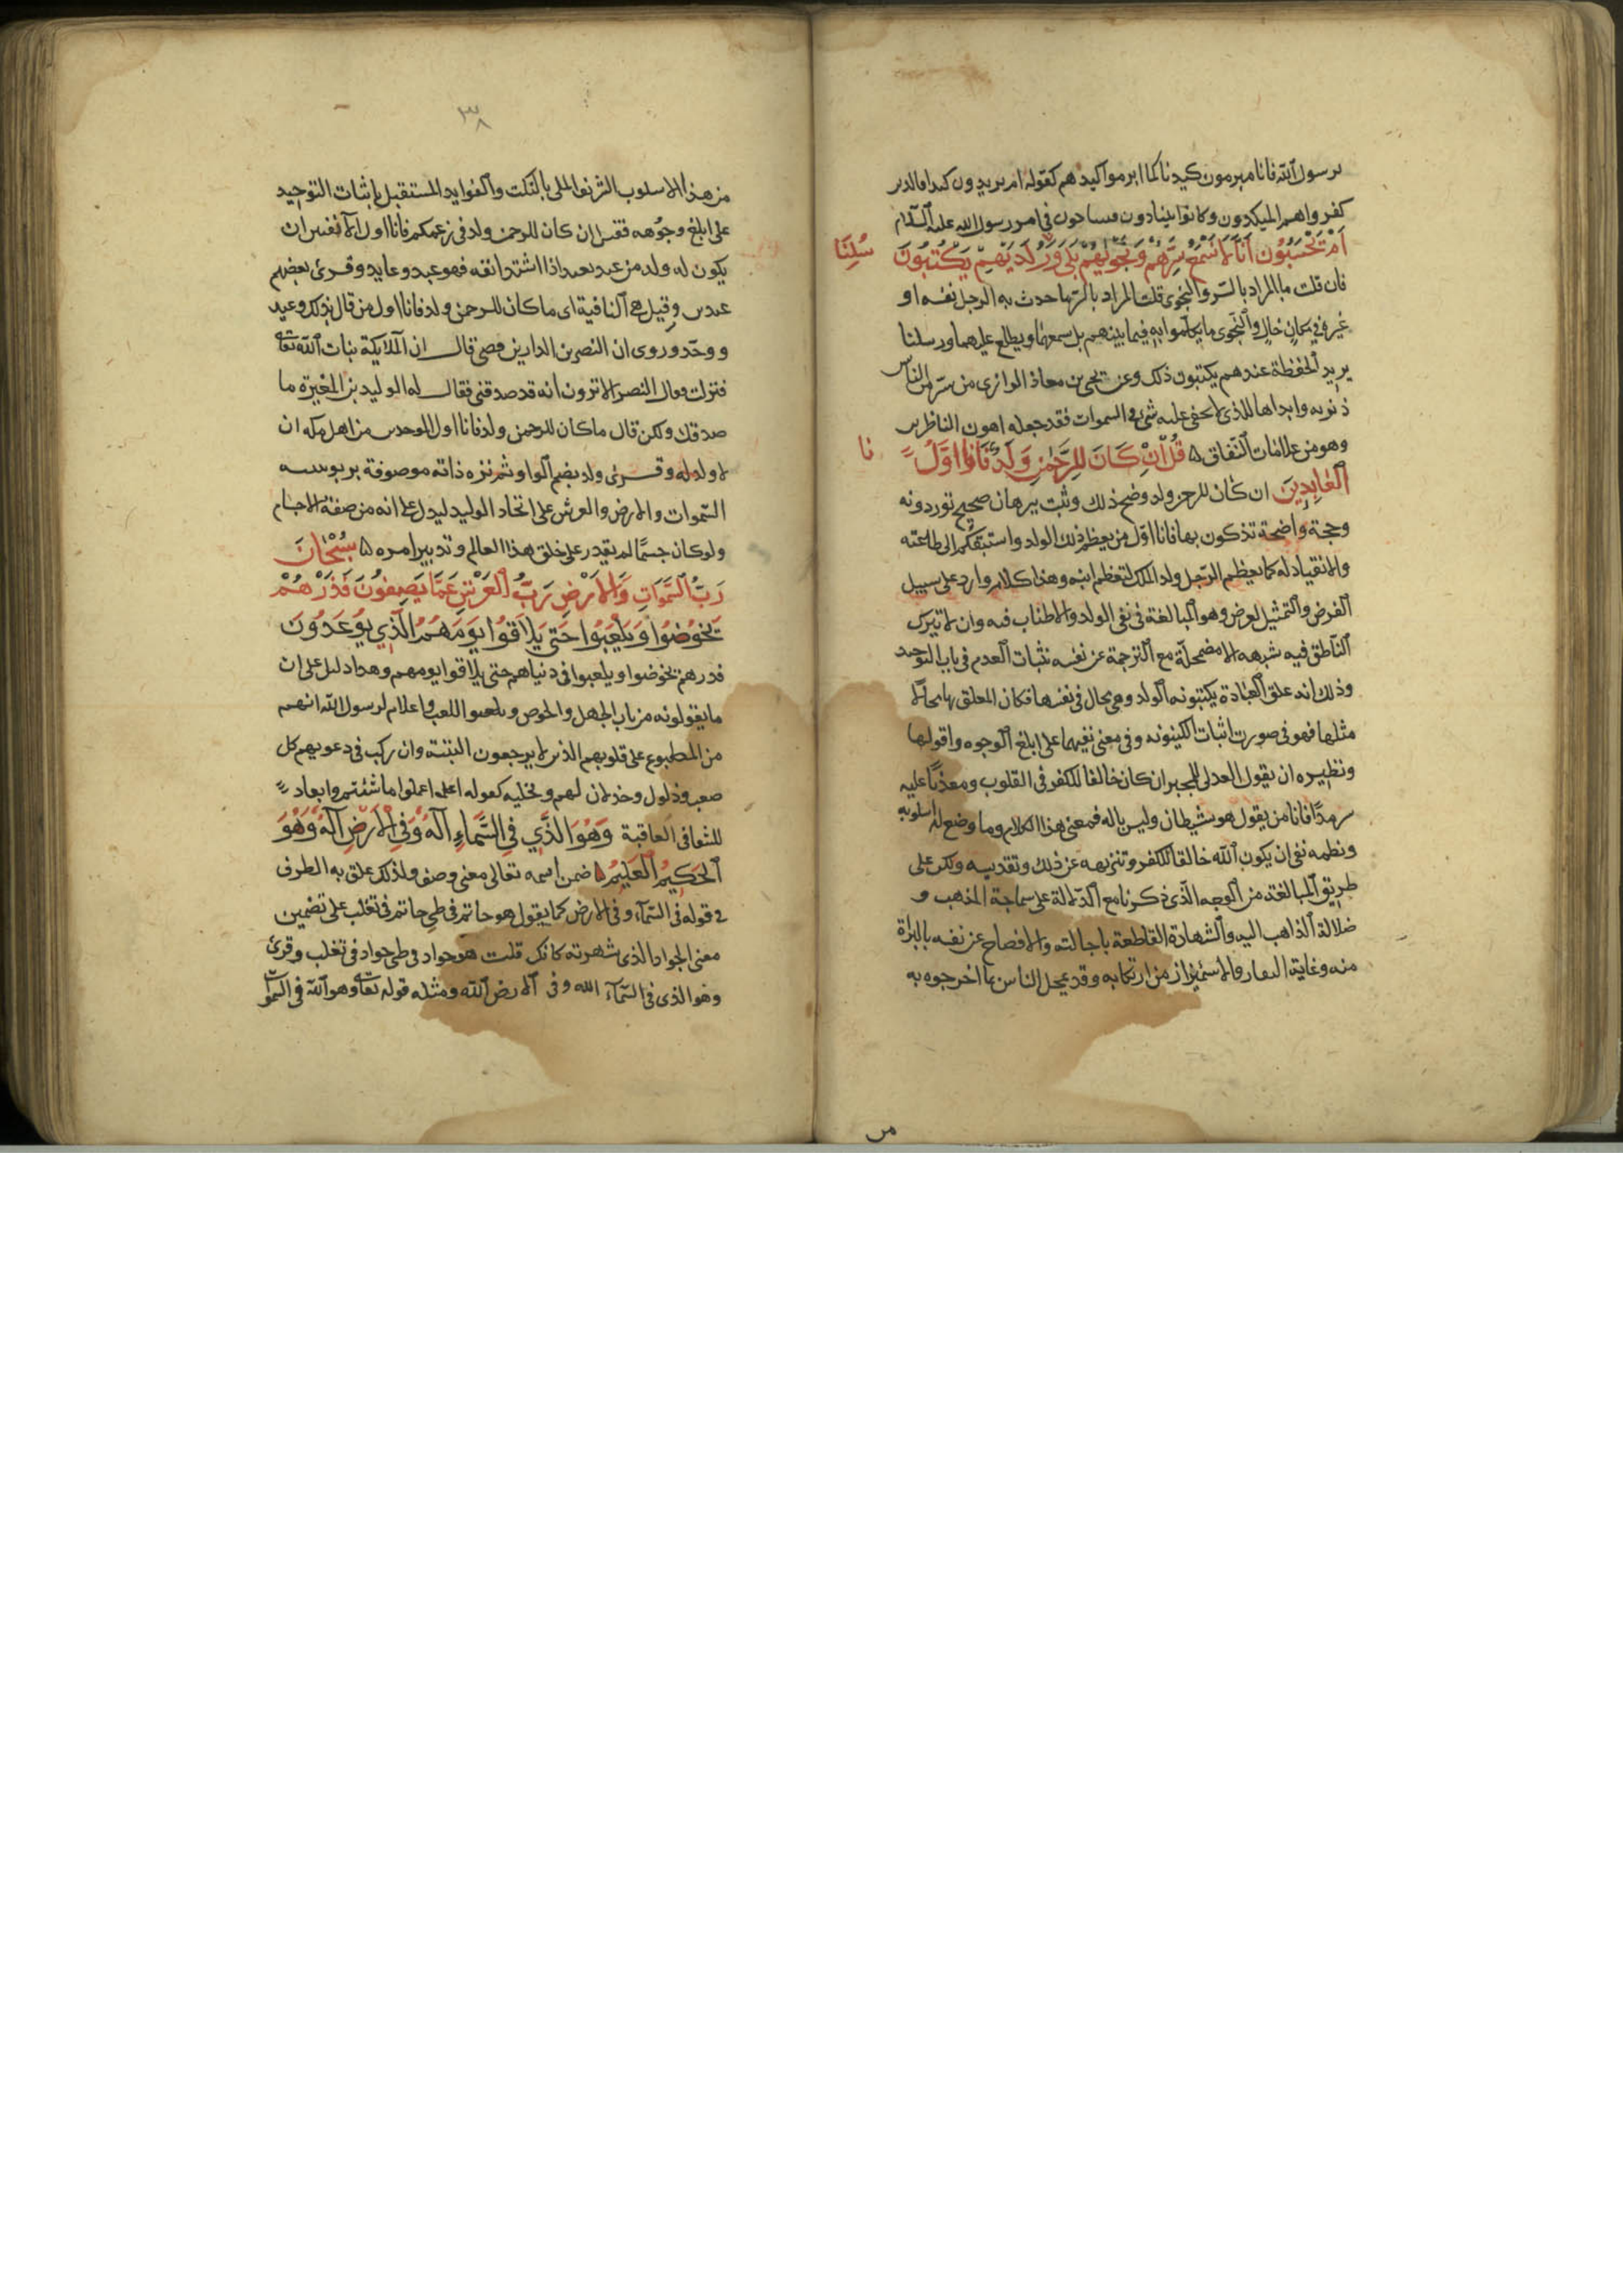 برسول الله فانا مبرمون كيدنا كما ابرموا كيدهم كقوله ام يريدون كيدا فالذين
كفروا هم المكيدون وكانوا يتنادون فيتناجون في امر رسول الله عليه السلام
اَمْ تَحْسَبُونَ اَنَّا لَا نَسْمَعُ سِرَّهُمْ وَنَجْوٰيهُمْ بَلٰى وَرُسُلُنَا لَدَيْهِمْ يَكْتُبُونَ
فان قلت ما المراد بالسر والنجوى قلت المراد بالسر ما حدث به الرجل نفسه او
غيره في مكان خال والنجوى ما تكلموا به فيما بينهم بل نسمعها ونطلع عليهما ورسلنا
يريد الحفظة عندهم يكتبون ذلك وعن يحيى بن معاذ الرازي من ستر من الناس
ذنوبه وابداها للذي لا يخفى عليه شئ في السموات فقد جعله اهون الناظرين
وهو من علامات النفاق ۵ قُلْ اِنْ كَانَ لِلرَّحْمٰنِ وَلَدٌ فَانَا اَوَّلُ
الْعَابِدِينَ ان كان للرحمن ولد وصح ذلك وثبت ببرهان صحيح توردونه
وحجة واضحة تذكون بها فانا اول من يعظم ذلك الولد واسبقكم الى طاعته
والانقياد له كما يعظم الرجل ولد الملك لتعظيم ابيه وهذا كلام وارد على سبيل
الفرض والتمثيل لغرض وهو المبالغة في نفي الولد والاطناب فيه وان لا يترك
الناطق فيه شبهه الا مضمحلة مع الترجمة عن نفسه بثبات القدم في باب التوحيد
وذلك انه علق العبادة بكينونه الولد وهي محال في نفسها فكان المعلق بها محالا
مثلها فهو في صورت اثبات الكينونه وفي معنى نفيهما على ابلغ الوجوه واقولها
ونظيره ان يقول العدلى للمجبر ان كان خالقا للكفر في القلوب ومعذبا عليه
سرمدا فانا من يقول هو شيطان وليس باله فمعنى هذا الكلام وما وضع له اسلوبه
ونظمه نفي ان يكون الله خالقا للكفر وتنزيهه عن ذلك وتقديسه ولكن على
طريق المبالغة من الوجه الذي ذكرنا مع الدلالة على سماجة المذهب و
ضلالة الذاهب اليه والشهادة القاطعة باحالته والافصاح عن نفسه بالبراة
منه وغاية النفار والاسمئزاز من ارتكابه وقد يحمل الناس بما اخرجوه به
۳۸
من هذا الاسلوب الشريف الملى بالنكت والفوايد المستقبل باثبات التوحيد
على ابلغ وجوهه فقيل ان كان للرحمن ولد في زعمكم فانا اول الآنفين ان
يكون له ولد من عبد يعبد اذا اشتد انفه فهو عبد وعابد وقرئ بعضهم
عبدين وقيل هي النافية اى ما كان للرحمن ولد فانا اول من قال بذلك وعبد
ووحد وروى ان النضر بن الدار بن قصى قال ان الملايكة بنات الله تعالى
فنزلت فقال النضر الا ترون انه قد صدقنى فقال له الوليد بن المغيرة ما
صدقك ولكن قال ما كان للرحمن ولد فانا اول الموحدين من اهل مكه ان
لا ولد له وقرئ ولد بضم الواو ثم نزه ذاته موصوفة بربوبيته
السموات والارض والعرش على اتخاد الوليد ليدل على انه من صفة الاجسام
ولو كان جسما لم يقدر على خلق هذا العالم وتدبير امره ۵ سُبْحَانَ
رَبِّ السَّمَوَاتِ وَالْاَرْضِ رَبِّ الْعَرْشِ عَمَّا يَصِفُونَ فَذَرْهُمْ
يَخُوضُوا وَيَلْعَبُوا حَتَّى يُلَاقُوا يَوْمَهُمُ الَّذِي يُوعَدُونَ
فذرهم يخوضوا ويلعبوا في دنياهم حتى يلاقوا يومهم وهذا دليل على ان
ما يقولونه من باب الجهل والخوض واللعب واعلام لرسول الله انهم
من المطبوع على قلوبهم الذين لا يرجعون البتة وان ركب في دعوتهم كل
صعب وذلول وخذلان لهم وتخلية كقوله اعملوا ما شئتم وابعاد
للشقا في العاقبة وَهُوَ الَّذِي فِي السَّمَاءِ اِلَهٌ وَفِي الْاَرْضِ اِلَهٌ وَهُوَ
الْحَكِيمُ الْعَلِيمُ ۵ ضمن اسمه تعالى معنى وصف ولذلك علق به الظرف
في قوله في السمآء وفي الارض كما يقول هو حاتم في طي حاتم في تغلب على تضمين
معنى الجواد الذي شهر به كانك قلت هو جواد في طي جواد في تغلب وقرئ
وهو الذي في السمآء الله وفي الارض الله ومثله قوله تعالى وهو الله في السموات